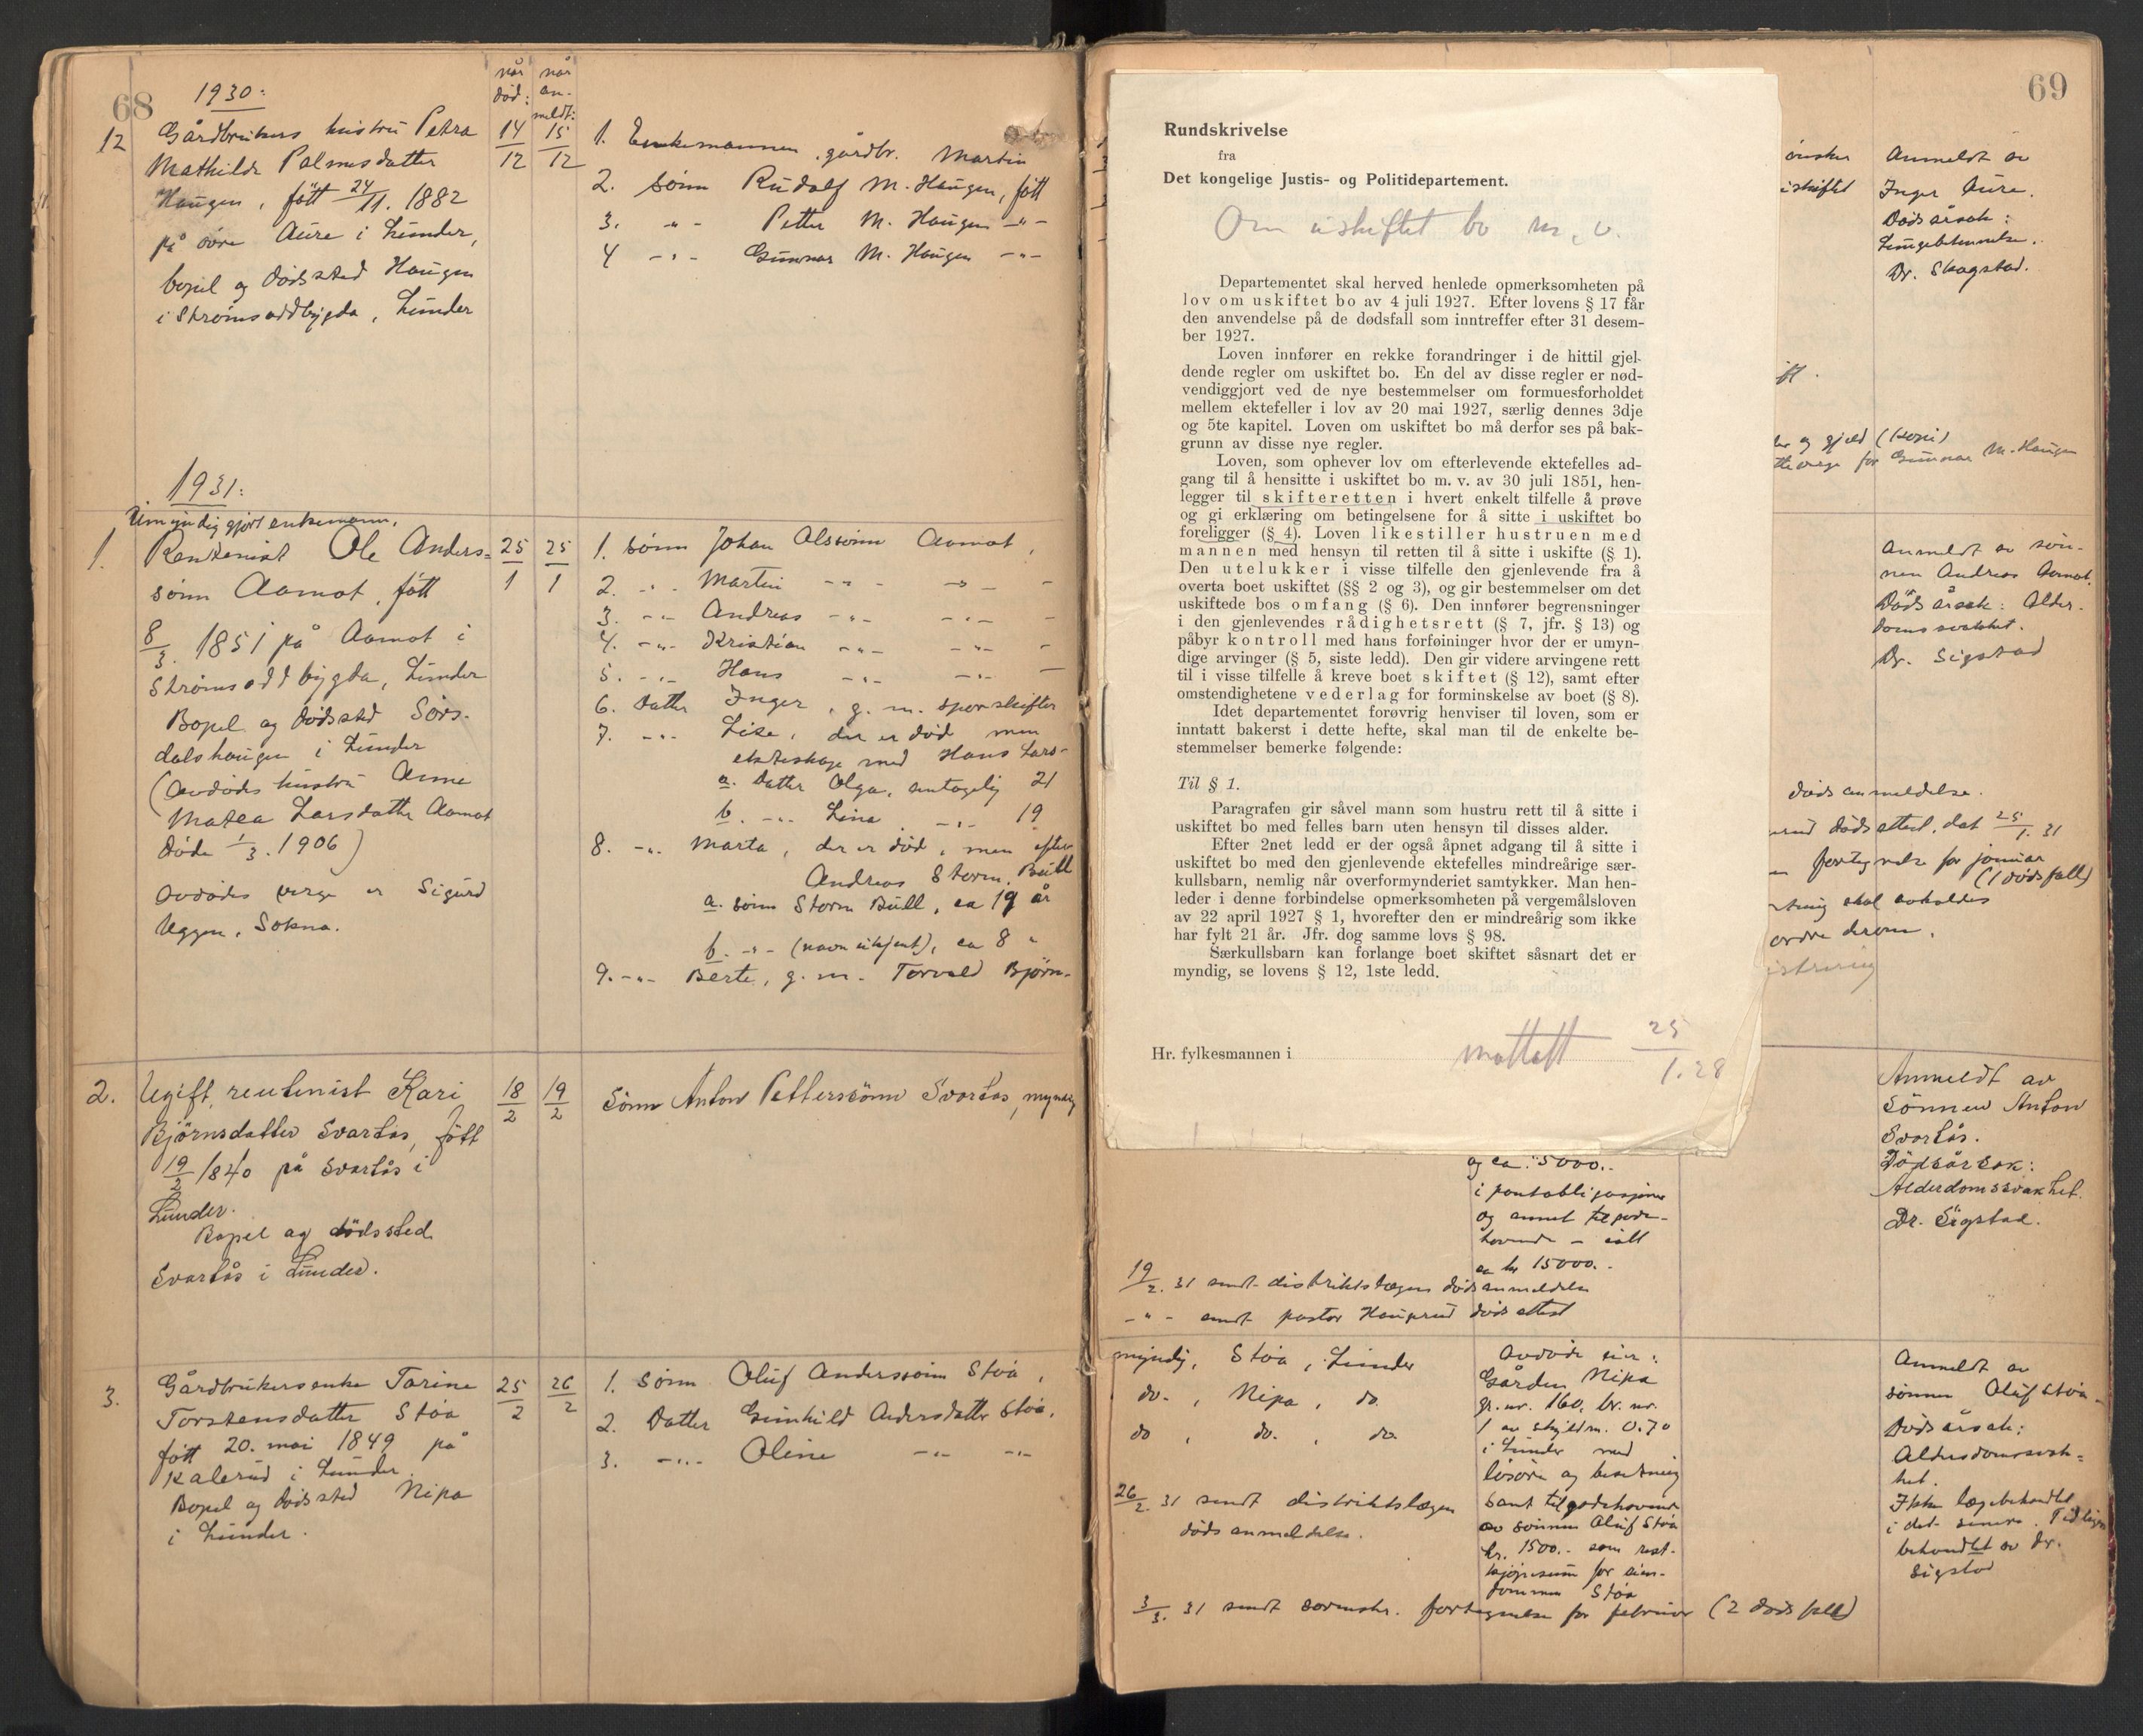 68
1930:
når død:
når anmeldt:
12
Gårdbrukers hustru Petra
Mathilde Palmesdatter
Haugen, fött 24/11. 1882
på övre Aure i Lunder,
bopel og dödssted Haugen
i Strömsoddbygda, Lunder
14/12
15/12
1. Enkemannen, gårdbr. Martin
2. Sönn Rudolf M. Haugen, fött
3. -"- Petter M. Haugen -"-
4 -"- Gunnar M. Haugen -"-
1931:
Umyndiggjort enkemann,
1.
Rentenist Ole Anders-
sönn Aamot, fött
8/3. 1851 på Aamot i
Strömsoddbygda, Lunder
Bopel og dödssted Sörs-
dalshaugen i Lunder
(Avdödes hustru Anne
Matea Larsdatter Aamot
döde 1/3. 1906)
Avdödes verge er Sigurd
Uggen, Sokna.
25/1
25/1
1. Sönn Johan Olssönn Aamot,
2. -"- Martin -"- -"- -
3. -"- Andreas -"- -"- -
4. -"- Kristian -"- -"- -
5. -"- Hans -"- -"- -
6. Datter Inger, g. m. sporskifter
7. -"- Lise, der er död men
ekteskap med Hans Lars-
a. Datter Olga, antagelig 21
b. -"- Lina -"- 19
8. -"- Marta, der er död, men efter
Andreas Storm Bull
a. sönn Storm Bull, ca 19 år
b. -"- (navn ukjent), ca 8 "
9. -"- Berte, g. m. Torvald Björn-
2.
Ugift, rentenist Kari
Björnsdatter Svartås, fött
19/2 1840 på Svartås i
Lunder.
Bopel og dödssted
Svartås i Lunder.
18/2
19/2
Sönn Anton Petterssönn Svartås, myndig
3.
Gårdbrukerenke Torine
Torstensdatter Stöa
fött 20. mai 1849 på
Kalerud i Lunder.
Bopel og dödssted Nipa
i Lunder.
25/2
26/2
1. Sönn Oluf Anderssönn Stöa,
2. Datter Gunhild Andersdatter Stöa,
3. -"- Oline -"- -"-
69
Rundskrivelse
fra
Det kongelige Justis- og Politidepartement.
Om uskiftet bo m. v.
Departementet skal herved henlede opmerksomheten på
lov om uskiftet bo av 4 juli 1927. Efter lovens § 17 får
den anvendelse på de dødsfall som inntreffer efter 31 desem-
ber 1927.
Loven innfører en rekke forandringer i de hittil gjel-
dende regler om uskiftet bo. En del av disse regler er nød-
vendiggjort ved de nye bestemmelser om formuesforholdet
mellem ektefeller i lov av 20 mai 1927, særlig dennes 3dje
og 5te kapitel. Loven om uskiftet bo må derfor ses på bak-
grunn av disse nye regler.
Loven, som ophever lov om efterlevende ektefelles ad-
gang til å hensitte i uskiftet bo m. v. av 30 juli 1851, hen-
legger til skifteretten i hvert enkelt tilfelle å prøve
og gi erklæring om betingelsene for å sitte i uskiftet bo
foreligger (§ 4). Loven likestiller hustruen med
mannen med hensyn til retten til å sitte i uskifte (§ 1).
Den utelukker i visse tilfelle den gjenlevende fra å
overta boet uskiftet (§§ 2 og 3), og gir bestemmelser om det
uskiftede bos omfang (§ 6). Den innfører begrensninger
i den gjenlevendes rådighetsrett (§ 7, jfr. § 13) og
påbyr kontroll med hans forføininger hvor der er umyn-
dige arvinger (§ 5, siste ledd). Den gir videre arvingene rett
til i visse tilfelle å kreve boet skiftet (§ 12), samt efter
omstendighetene vederlag for forminskelse av boet (§ 8).
Idet departementet forøvrig henviser til loven, som er
inntatt bakerst i dette hefte, skal man til de enkelte be-
stemmelser bemerke følgende:
Til § 1.
Paragrafen gir såvel mann som hustru rett til å sitte i
uskiftet bo med felles barn uten hensyn til disses alder.
Efter 2net ledd er der også åpnet adgang til å sitte i
uskiftet bo med den gjenlevende ektefelles mindreårige sær-
kullsbarn, nemlig når overformynderiet samtykker. Man hen-
leder i denne forbindelse opmerksomheten på vergemålsloven
av 22 april 1927 § 1, hvorefter den er mindreårig som ikke
har fylt 21 år. Jfr. dog samme lovs § 98.
Særkullsbarn kan forlange boet skiftet såsnart det er
myndig, se lovens § 12, 1ste ledd.
Hr. fylkesmannen i
mottatt 25/1.28
ønsker
iskiftet
Anmeldt av
Inger Aure.
Dödsårsak:
Lungebetennelse.
Dr. Skagstad.
og gjeld (kopi)
for Gunnar M. Haugen
Anmeldt av sön-
nen Andreas Aamot.
Dödsårsak: Alder-
domssvakhet.
Dr. Sigstad
dödsanmeldelse.
dödsattest, dat 25/1. 31
fortegnelse for januar
(1 dödsfall)
skal avholdes
ordre derom.
Anmeldt av
Sönnen Anton
Svartås.
Dödsårsak:
Alderdomssvakhet.
Dr. Sigstad.
og ca. 5000.-
i pantobligasjoner
og annet tilgode-
havende - ialt
ca kr 15000.-
19/2. 31 sendt distriktslægen dödsanmeldelse
-"- sendt pastor Haugerud dödsattest
myndig, Stöa, Lunder
do. , Nipa, do.
do , do. , do.
26/2. 31 sendt distriktslægen
dödsanmeldelse.
Avdöde eier:
Gården Nipa
gr. nr. 160, br. nr.
1 av skyldm. 0.70
i Lunder med
lösöre og besetning
samt tilgodehavende
av sönnen Oluf Stöa
kr. 1500.- som rest-
kjöpesum for eien-
dommen Stöa
3/3. 31 sendt sorenskr. fortegnelse for februar (2 dödsfall)
Anmeldt av
sönnen Oluf Stöa
Dödsårsak:
Alderdomssvak-
het.
Ikke lægebehandlet
i det senere. Tidligere
behandlet av Dr.
Sigstad